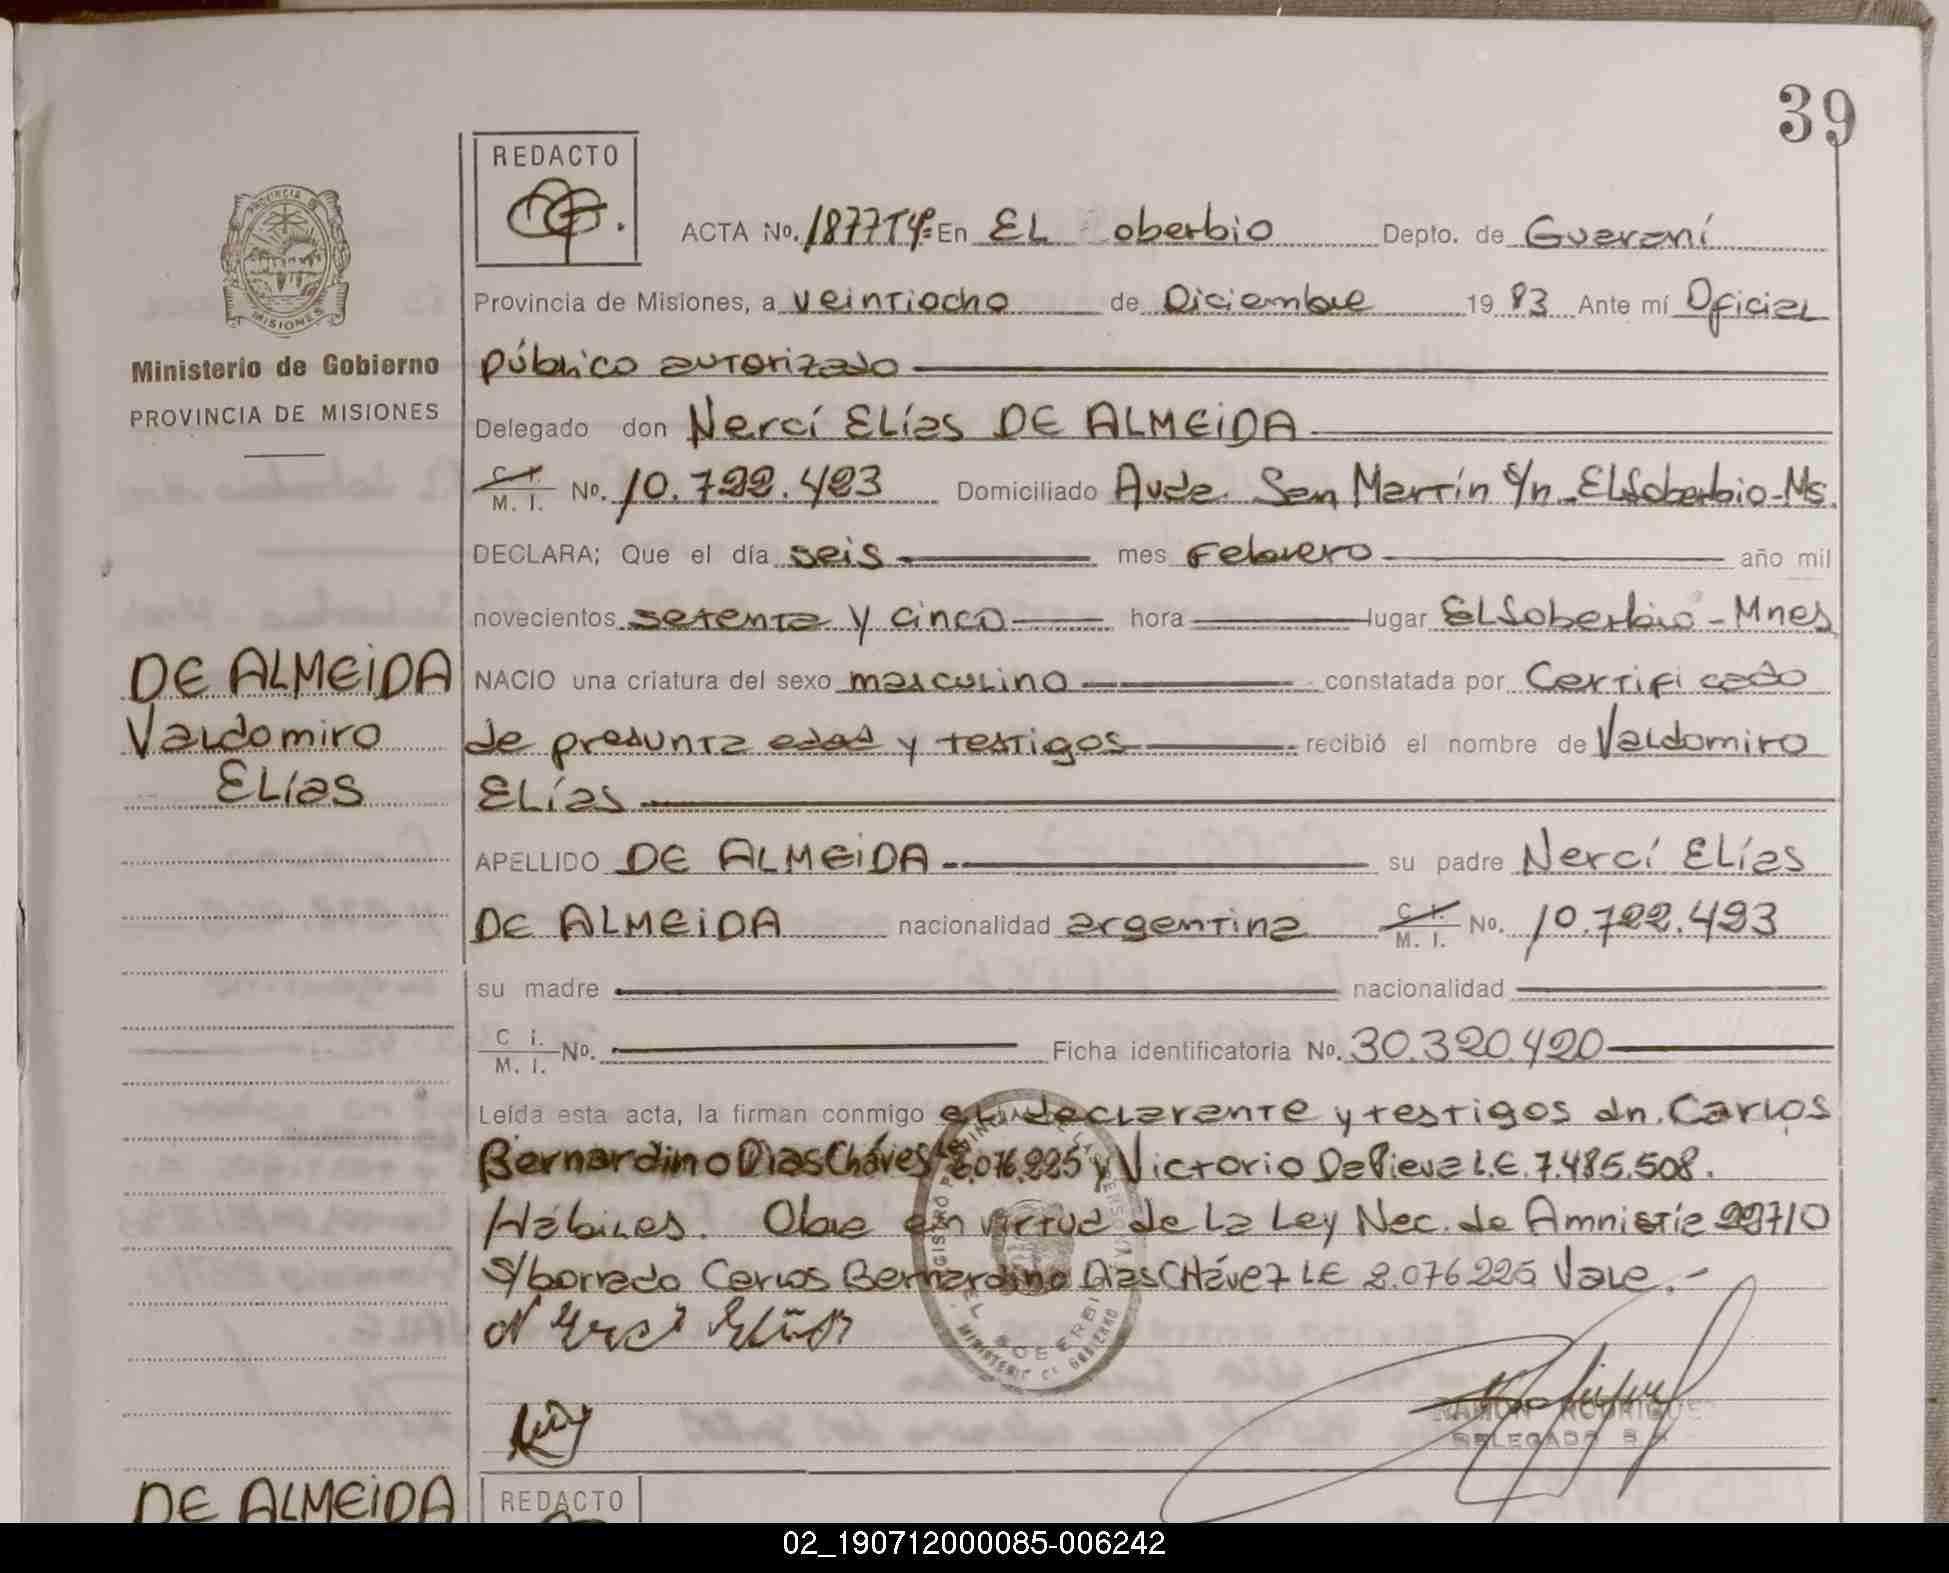 39
REDACTO
ACTA No. 1877T4º= En EL Soberbio Depto. de Guaraní
Provincia de Misiones, a veintiocho de Diciembre 19 83 Ante mí Oficial
Ministerio de Gobierno
público autorizado
PROVINCIA DE MISIONES
Delegado don Nercí Elías DE ALMEIDA
C. I. / M. I. No. 10.722.493 Domiciliado Avda. San Martín S/n. El Soberbio-Ms.
DECLARA; Que el día seis mes Febrero año mil
novecientos setenta y cinco hora lugar El Soberbio - Mnes
DE ALMEIDA
NACIO una criatura del sexo masculino constatada por Certificado
Valdomiro
de presunta edad y testigos recibió el nombre de Valdomiro
Elías
Elías
APELLIDO DE ALMEIDA su padre Nercí Elías
DE ALMEIDA nacionalidad argentina C. I. / M. I. No. 10.722.493
su madre nacionalidad
C I. / M. I. No. Ficha identificatoria No. 30.320.420
Leída esta acta, la firman conmigo el declarante y testigos dn. Carlos
Bernardino Dias Cháves LE 8.076.225 y Victorio Da Pieva L.E. 7.485.508.
Hábiles. Obre en virtud de La Ley Nac. de Amnistía 22710
S/borrado Carlos Bernardino Dias CHávez LE 8.076225 Vale.-
Nerci Elias
RAMON RODRIGUEZ
DELEGADO
DE ALMEIDA
REDACTO
02_190712000085-006242